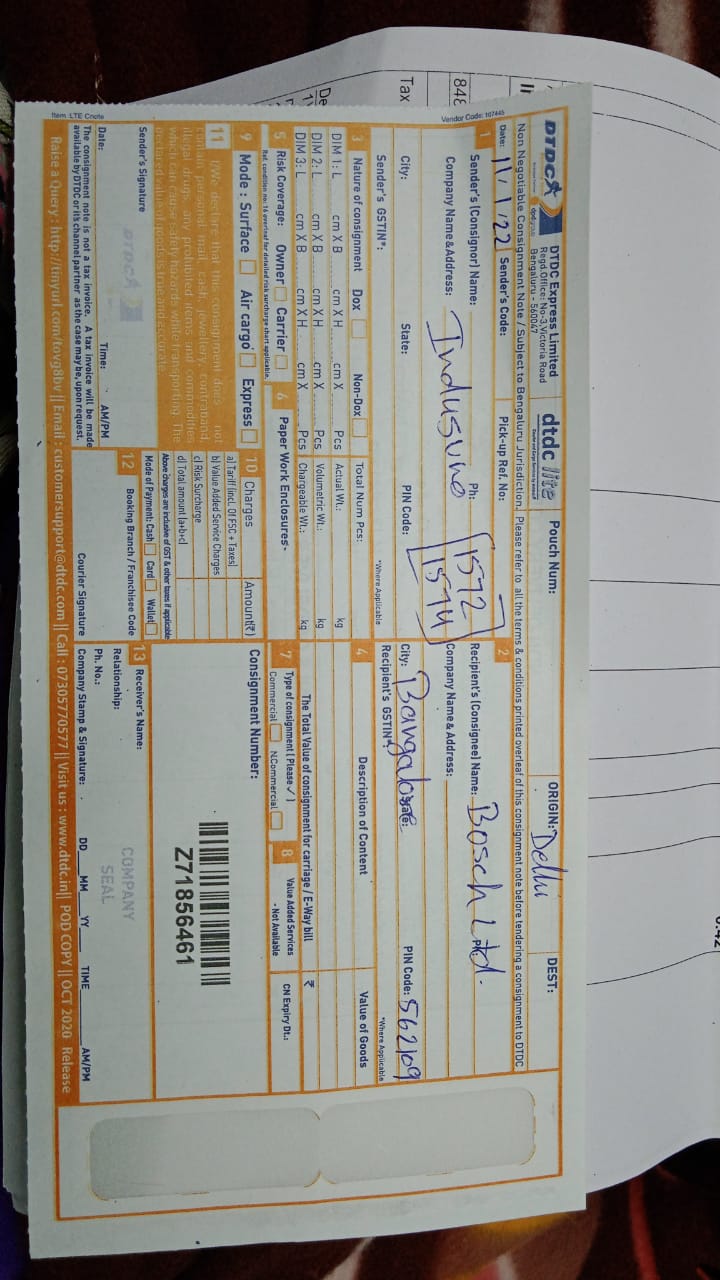 DTDC
DTDC Express Limited
Regd. Office: No-3, Victoria Road
Bengaluru - 560047
dtdc lite
Pouch Num:
ORIGIN: Delhi
DEST:
Non Negotiable Consignment Note / Subject to Bengaluru Jurisdiction. Please refer to all the terms & conditions printed overleaf of this consignment note before tendering a consignment to DTDC
Date: 11/1/22
Sender's Code:
Pick-up Ref. No:
1
Sender's (Consignor) Name:
Ph:
Company Name & Address:
Indusvno
1572
1574
City:
State:
PIN Code:
Sender's GSTIN*:
*Where Applicable
2
Recipient's (Consignee) Name: Bosch Ltd.
Company Name & Address:
City: Bangalore
State:
PIN Code: 562109
Recipient's GSTIN*:
*Where Applicable
3 Nature of consignment Dox Non-Dox
Total Num Pcs:
DIM 1: L cm X B cm X H cm X Pcs
Actual Wt.: kg
DIM 2: L cm X B cm X H cm X Pcs
Volumetric Wt.: kg
DIM 3: L cm X B cm X H cm X Pcs
Chargeable Wt.: kg
4 Description of Content
Value of Goods
The Total Value of consignment for carriage / E-Way bill ₹
5 Risk Coverage: Owner Carrier
Ref. condition no: 16 overleaf for detailed risk surcharge chart applicable.
6 Paper Work Enclosures-
7 Type of consignment ( Please ✓ )
Commercial N.Commercial
8 Value Added Services
- Not Available
CN Expiry Dt.:
9 Mode : Surface Air cargo Express
10 Charges Amount(₹)
a) Tariff (incl. Of FSC + Taxes)
b) Value Added Service Charges
c) Risk Surcharge
d) Total amount (a+b+c)
Above charges are inclusive of GST & other taxes if applicable
Mode of Payment: Cash Card Wallet
Consignment Number:
Z71856461
11 I/We declare that this consignment does not
contain personal mail, cash, jewellery, contraband,
illegal drugs, any prohibited items and commodities
which can cause safety hazards while transporting. The
declared value of goods is true and accurate.
Sender's Signature
DTDC
Date: Time: AM/PM
The consignment note is not a tax invoice. A tax invoice will be made
available by DTDC or its channel partner as the case may be, upon request.
12 Booking Branch / Franchisee Code
Courier Signature
13 Receiver's Name:
Relationship:
Ph. No.:
COMPANY
SEAL
Company Stamp & Signature:
DD MM YY TIME AM/PM
Raise a Query : http://tinyurl.com/tovg8bv || Email : customersupport@dtdc.com || Call : 07305770577 || Visit us : www.dtdc.in|| POD COPY || OCT 2020 Release
Item :LTE Cnote
Vendor Code: 107445
848
Tax
De